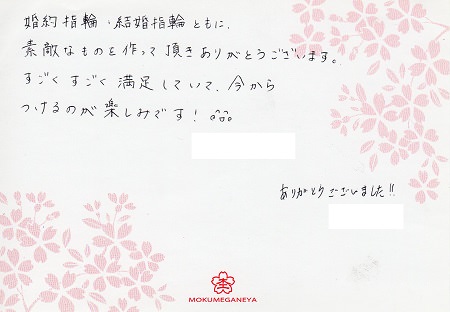 婚約指輪・結婚指輪ともに、
素敵なものを作って頂きありがとうございます。
すごくすごく満足していて、今から
つけるのが楽しみです！
ありがとうございました!!
MOKUMEGANEYA